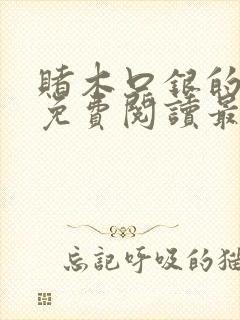 賭木口銀的
免費閱讀最
忘記呼吸的貓